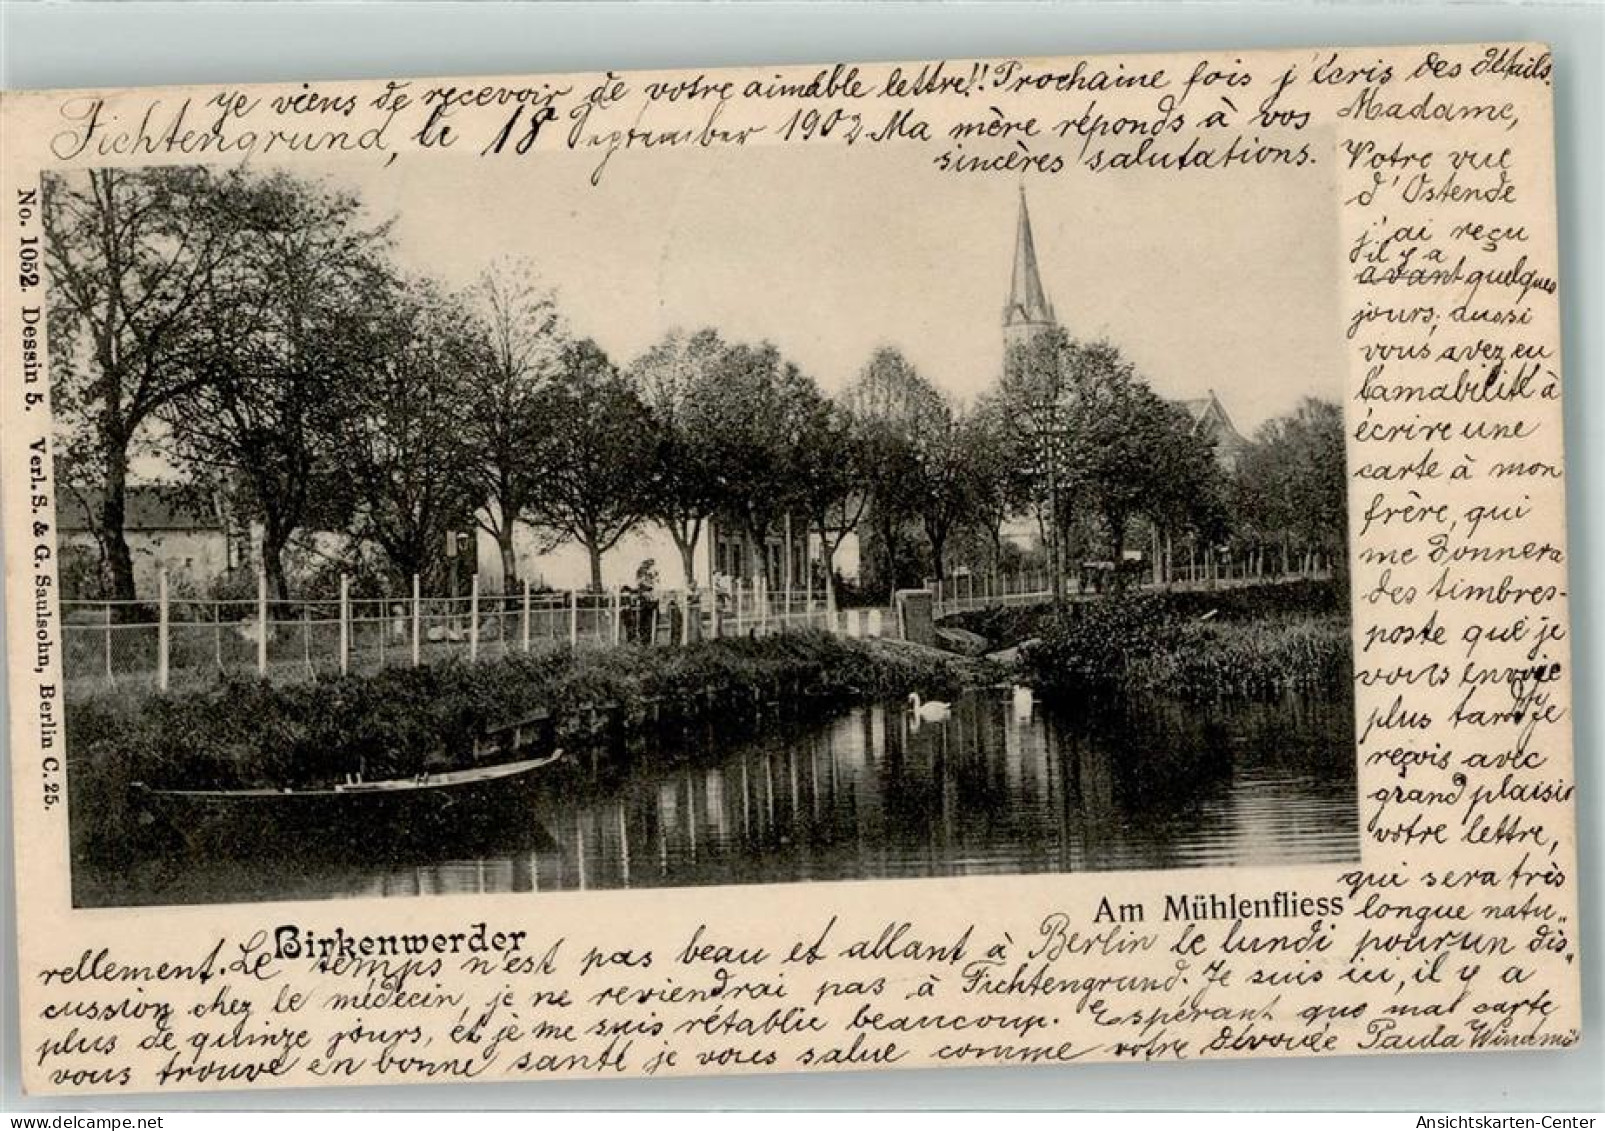 Je viens de recevoir de votre aimable lettre!! Prochaine fois j'écris des détails.
Fichtengrund, le 18 September 1902 Ma mère réponds à vos
sincères salutations.
Madame,
Votre vue
d'Ostende
j'ai reçu
il y a
avant quelques
jours; aussi
vous avez eu
l'amabilité à
écrire une
carte à mon
frère, qui
me donnera
des timbres-
poste que je
vous envoie
plus tard. Je
reçois avec
grand plaisir
votre lettre,
qui sera très
longue natu„
rellement. Le temps n'est pas beau et allant à Berlin le lundi pour un dis„
cussion chez le médecin, je ne reviendrai pas à Fichtengrund. Je suis ici, il y a
plus de quinze jours, et je me suis rétablie beaucoup. Espérant que ma carte
vous trouve en bonne santé je vous salue comme votre dévouée Paula
No. 1052. Dessin 5. Verl. S. & G. Saulsohn, Berlin C. 25.
Birkenwerder
Am Mühlenfliess
Ansichtskarten-Center